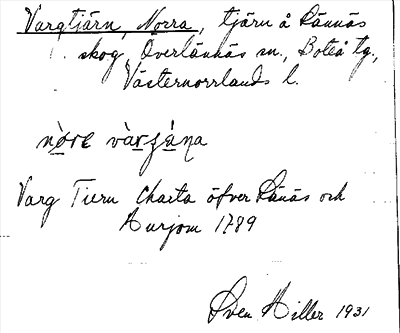 Vargtjärn, Norra, tjärn å Rännäs
skog, Överlännäs sn., Boteå tg.,
Västernorrlands l.
Varg Tiern Charta öfver Ränäs och
1789
Sven Hiller 1931